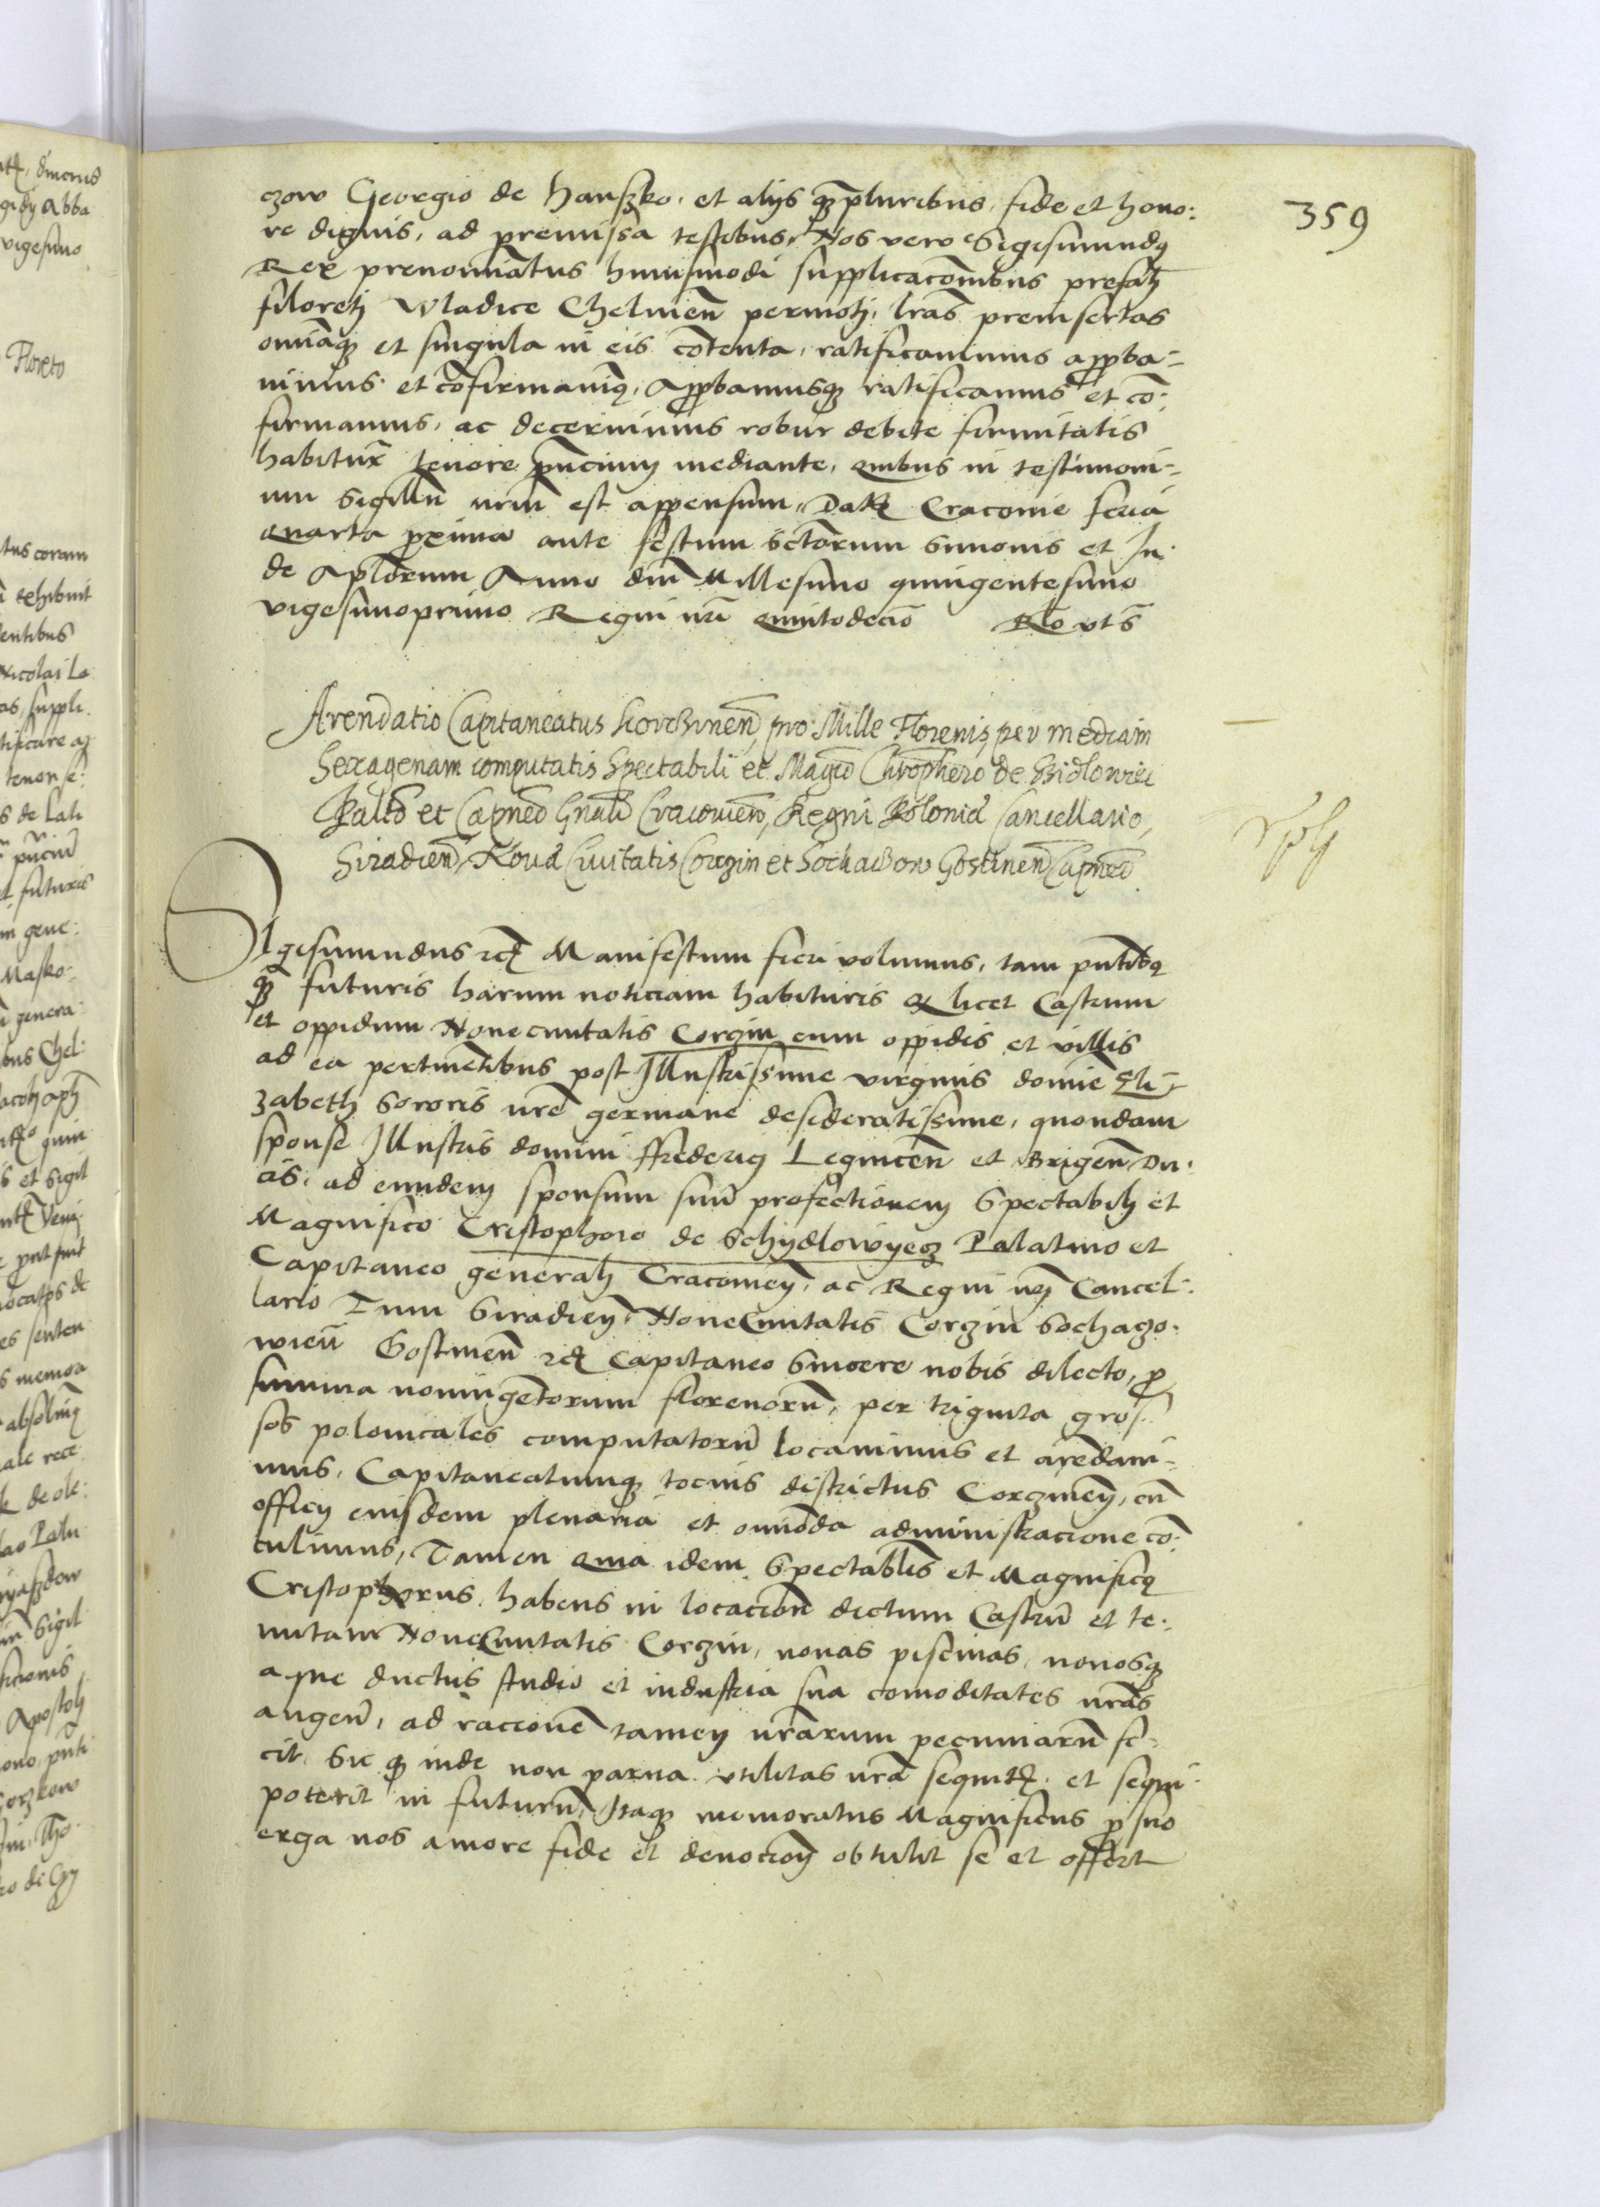 359
czow Georgio de hanszko, et alijs qȝpluribus, fide et hono:
re dignis, ad premissa testibus, Nos vero Sigismundus
Rex prenominatus huiusmodi supplicacõnibus prefati
filoreti Wladice Chelmeñ permoti, lras preinsertas
omniaqȝ et singula in eis contenta, ratificauimus approba-
uimus et cõfirmauimus, Approbamusqȝ ratificamus et cõ:
firmamus, ac decernimus robur debite firmitatis
habituras tenore pñcium mediante, quibus in testimoni-
um sigillũ nrũ est appensum, Dat Cracouie feria
quarta proxima ante festum sctorum Simonis et Ju-
de Aplorum Anno dñi Millesimo quingentesimo
vigesimoprimo Regni nri quintodecimo Rlo vt s
Arendatio Capitaneatus KorCzinen̄, pro Mille Florenis, per mediam
Sexagenam computatis Spectabili et Magco Chrophero de Szidlowiec
Paltō et Capneō Gñali Cracouien̄, Regni Poloniæ Cancellario,
Siradien̄, Nouæ Ciuitatis Corczin et Sochaczow Gostinen̄ Capneō
Sigismundus rc Manifestum fieri volumus, tam pñtibus
qȝ futuris harum noticiam habituris Qȝ licet Castrum
et oppidum Nouecuitatis Corczin cum oppidis et villis
ad ea pertinẽtibus post Illustrissime virginis domine Eli-
zabeth Sororis nre germane desideratissime, quondam
sponse Illustris domini ffrederici Legnicen̄ et Brigen̄ Du-
cis, ad eundem sponsum suũ profectionem Spectabili et
Magnifico Cristophoro de Schydlowyecz Palatino et
Capitaneo generali Cracouien̄, ac Regni nri Cancel:
lario Tum Siradien̄, NoueCiuitatis Corczin Sochaczo-
wieñ Gostinen̄ rc Capitaneo Sincere nobis dilecto, pro
summa nonningentorum florenorũ, per triginta gros-
sos polonicales computatorũ locauimus et arẽdaui-
mus, Capitaneatumqȝ tocius districtus Corczinen̄, cũ
officij eiusdem plenaria et omnimoda administracione cõ-
tulimus, Tamen quia idem Spectabilis et Magnificus
Cristophorus habens in locacionẽ dictum Castrũ et te-
nutam NoueCiuitatis Corczin, nouas piscinas, nouosqȝ
aque ductus studio et industria sua comoditates nras
augeñ, ad racionẽ tamen nrarum pecuniarũ fe-
cit, Sic qȝ inde non parua vtilitas nra sequitur, et sequi
poterit in futurũ, Itaqȝ memoratus Magnificus pro suo
erga nos amore fide et deuocioñ obtulit se et offert